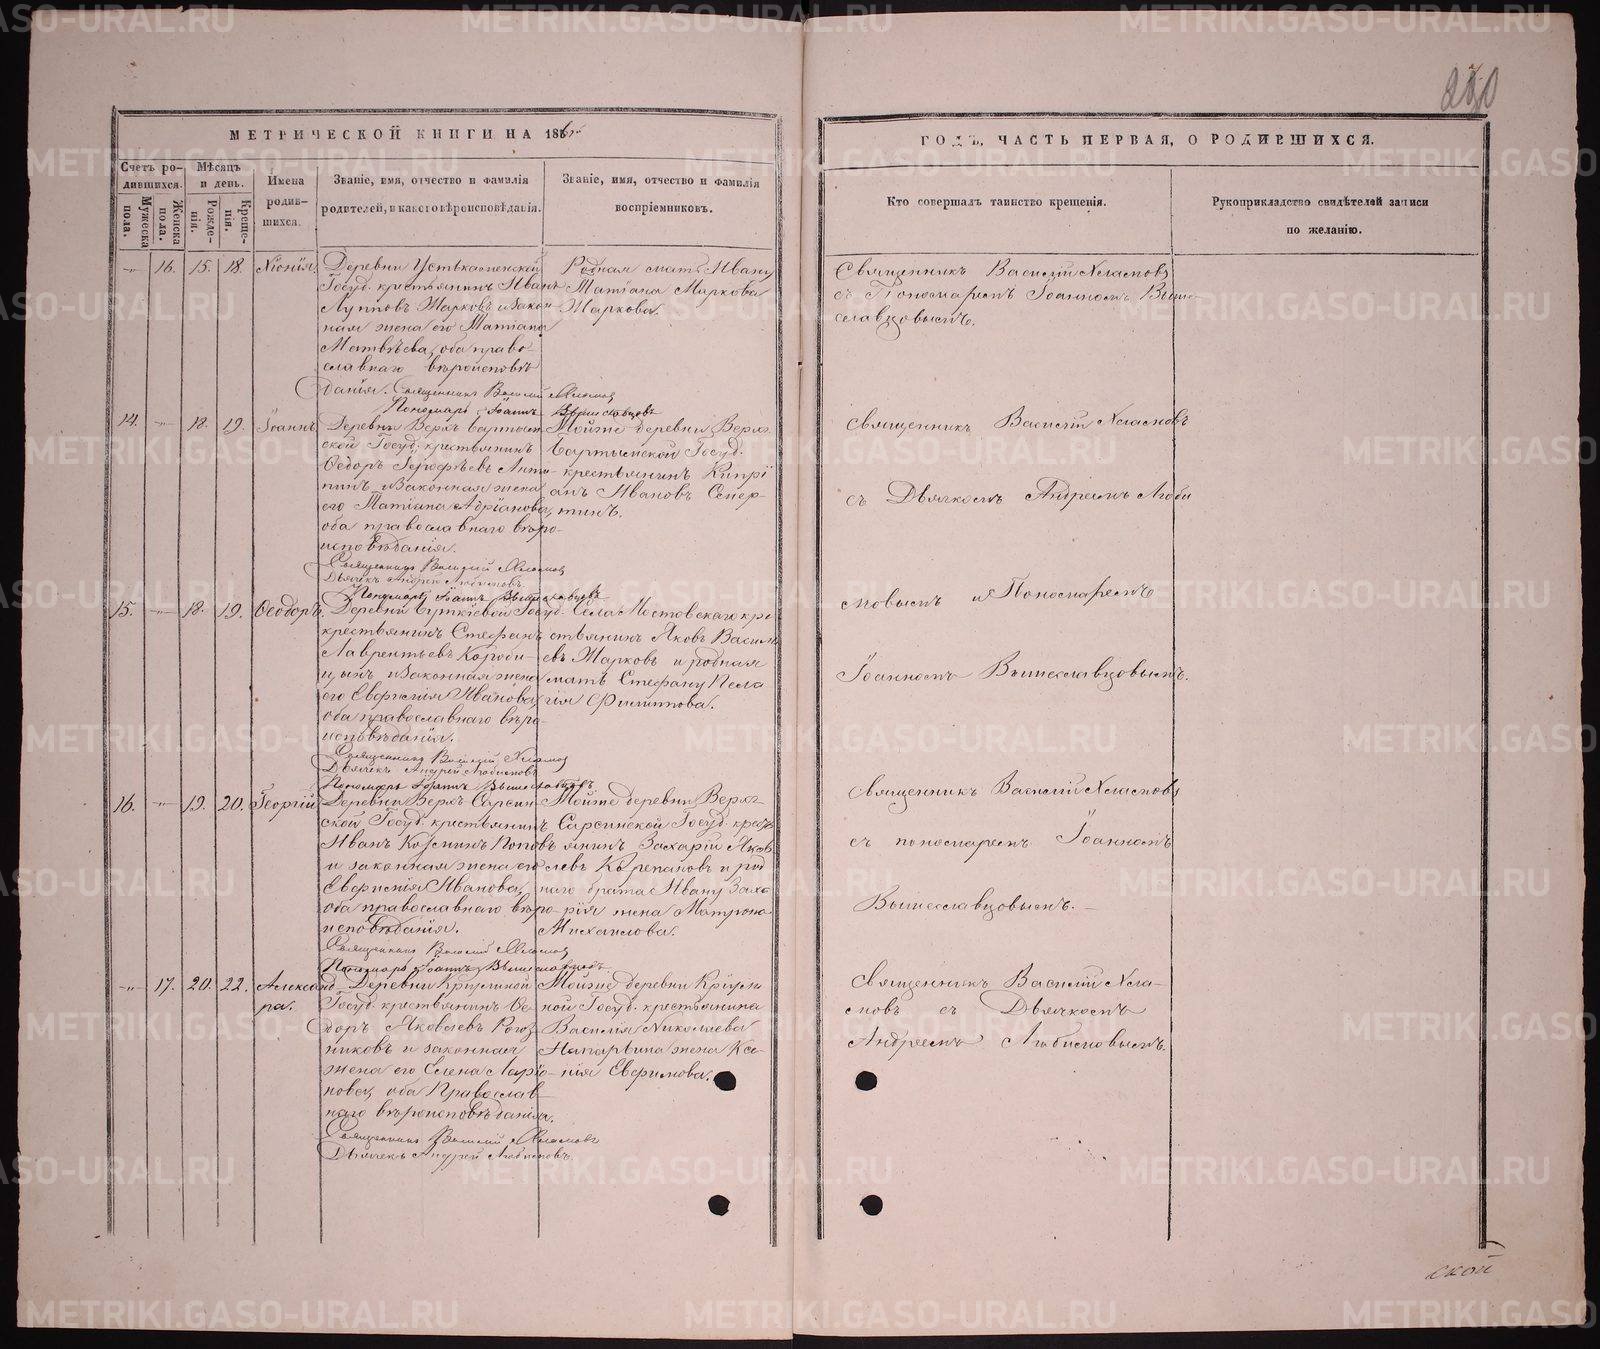 МЕТРИЧЕСКОЙ КНИГИ НА 186
ГОДЪ, ЧАСТЬ ПЕРВАЯ, О РОДИВШИХСЯ.
Счетъ ро-
дившихся.
Мужеска
пола.
Женска
пола.
Мѣсяцъ
и день.
Рожде-
нія.
Креще-
нія.
Имена
родив-
шихся.
Званіе, имя, отчество и фамилія
родителей, и какого вѣроисповѣданія.
Званіе, имя, отчество и фамилія
воспріемниковъ.
Кто совершалъ таинство крещенія.
Рукоприкладство свидѣтелей записи
по желанію.
-"- 16. 15. 18. Хіонія.
Деревни
Госуд. крестьянинъ Иванъ
Лупповъ Жарковъ и закон-
ная жена его Татіана
Матвѣева, оба право-
славнаго вѣроисповѣ
данія. Священникъ Василій Хламовъ
Пономарь Іоаннъ Вышеславцовъ
Родная мать Ивану
Татіана Маркова
Жаркова.
Священникъ Василій Хламовъ
съ Пономаремъ Іоанномъ Выше-
славцовымъ.
14. -"- 18. 19. Іоаннъ
Деревни Верхъ Бартым
ской Госуд. крестьянинъ
Ѳедоръ Ерофѣевъ Анти-
пинъ и законная жена
его Татіана Адріанова,
оба православнаго вѣро-
исповѣданія.
Священникъ Василій Хламовъ
Дьячекъ Андрей Любимовъ.
Пономарь Іоаннъ Вышеславцовъ
Тойже деревни Верхъ
Бартымской Госуд.
крестьянинъ Кипрі
анъ Ивановъ
Священникъ Василій Хламовъ
съ Дьячкомъ Андреемъ Люби
мовымъ и Пономаремъ
Іоанномъ Вышеславцовымъ.
15. -"- 18. 19. Ѳеодоръ.
Деревни Госуд.
крестьянинъ Стефанъ
Лаврентьевъ Короби-
цынъ и законная жена
его Евфимія Иванова,
оба православнаго вѣро-
исповѣданія.
Священникъ Василій Хламовъ
Дьячекъ Андрей Любимовъ
Пономарь Іоаннъ Вышеславцовъ.
Села Мостовскаго кре
стьянинъ Яковъ Василь
евъ Жарковъ и родная
мать Стефану Пела
гія Филиппова.
16. -"- 19. 20. Георгій
Деревни Верхъ Сарсин-
ской Госуд. крестьянинъ
Иванъ Козминъ Поповъ
и законная жена его
Евфимія Иванова,
оба православнаго вѣро-
исповѣданія.
Священникъ Василій Хламовъ
Пономарь Іоаннъ Вышеславцовъ.
Тойже деревни Верхъ-
Сарсинской Госуд. кресть
янинъ Захарій Яков
левъ Корепановъ и род
наго брата Ивану Заха
рія жена Матрона
Михайлова.
Священникъ Василій Хламовъ
съ пономаремъ Іоанномъ
Вышеславцовымъ.-
-"- 17. 20. 22. Александ
ра.
Деревни
Госуд. крестьянинъ Ѳе-
доръ Яковлевъ Рогоз
никовъ и законная
жена его Елена Ларіо-
нова, оба Православ-
наго вѣроисповѣданія.
Священникъ Василій Хламовъ
Дьячекъ Андрей Любимовъ.
Тойже деревни
ной Госуд. крестьянина
Василія Николаева
жена Ксе-
нія Евфимова.
Священникъ Василій Хла-
мовъ съ Дьячкомъ
Андреемъ Любимовымъ.
ской
METRIKI.GASO-URAL.RU